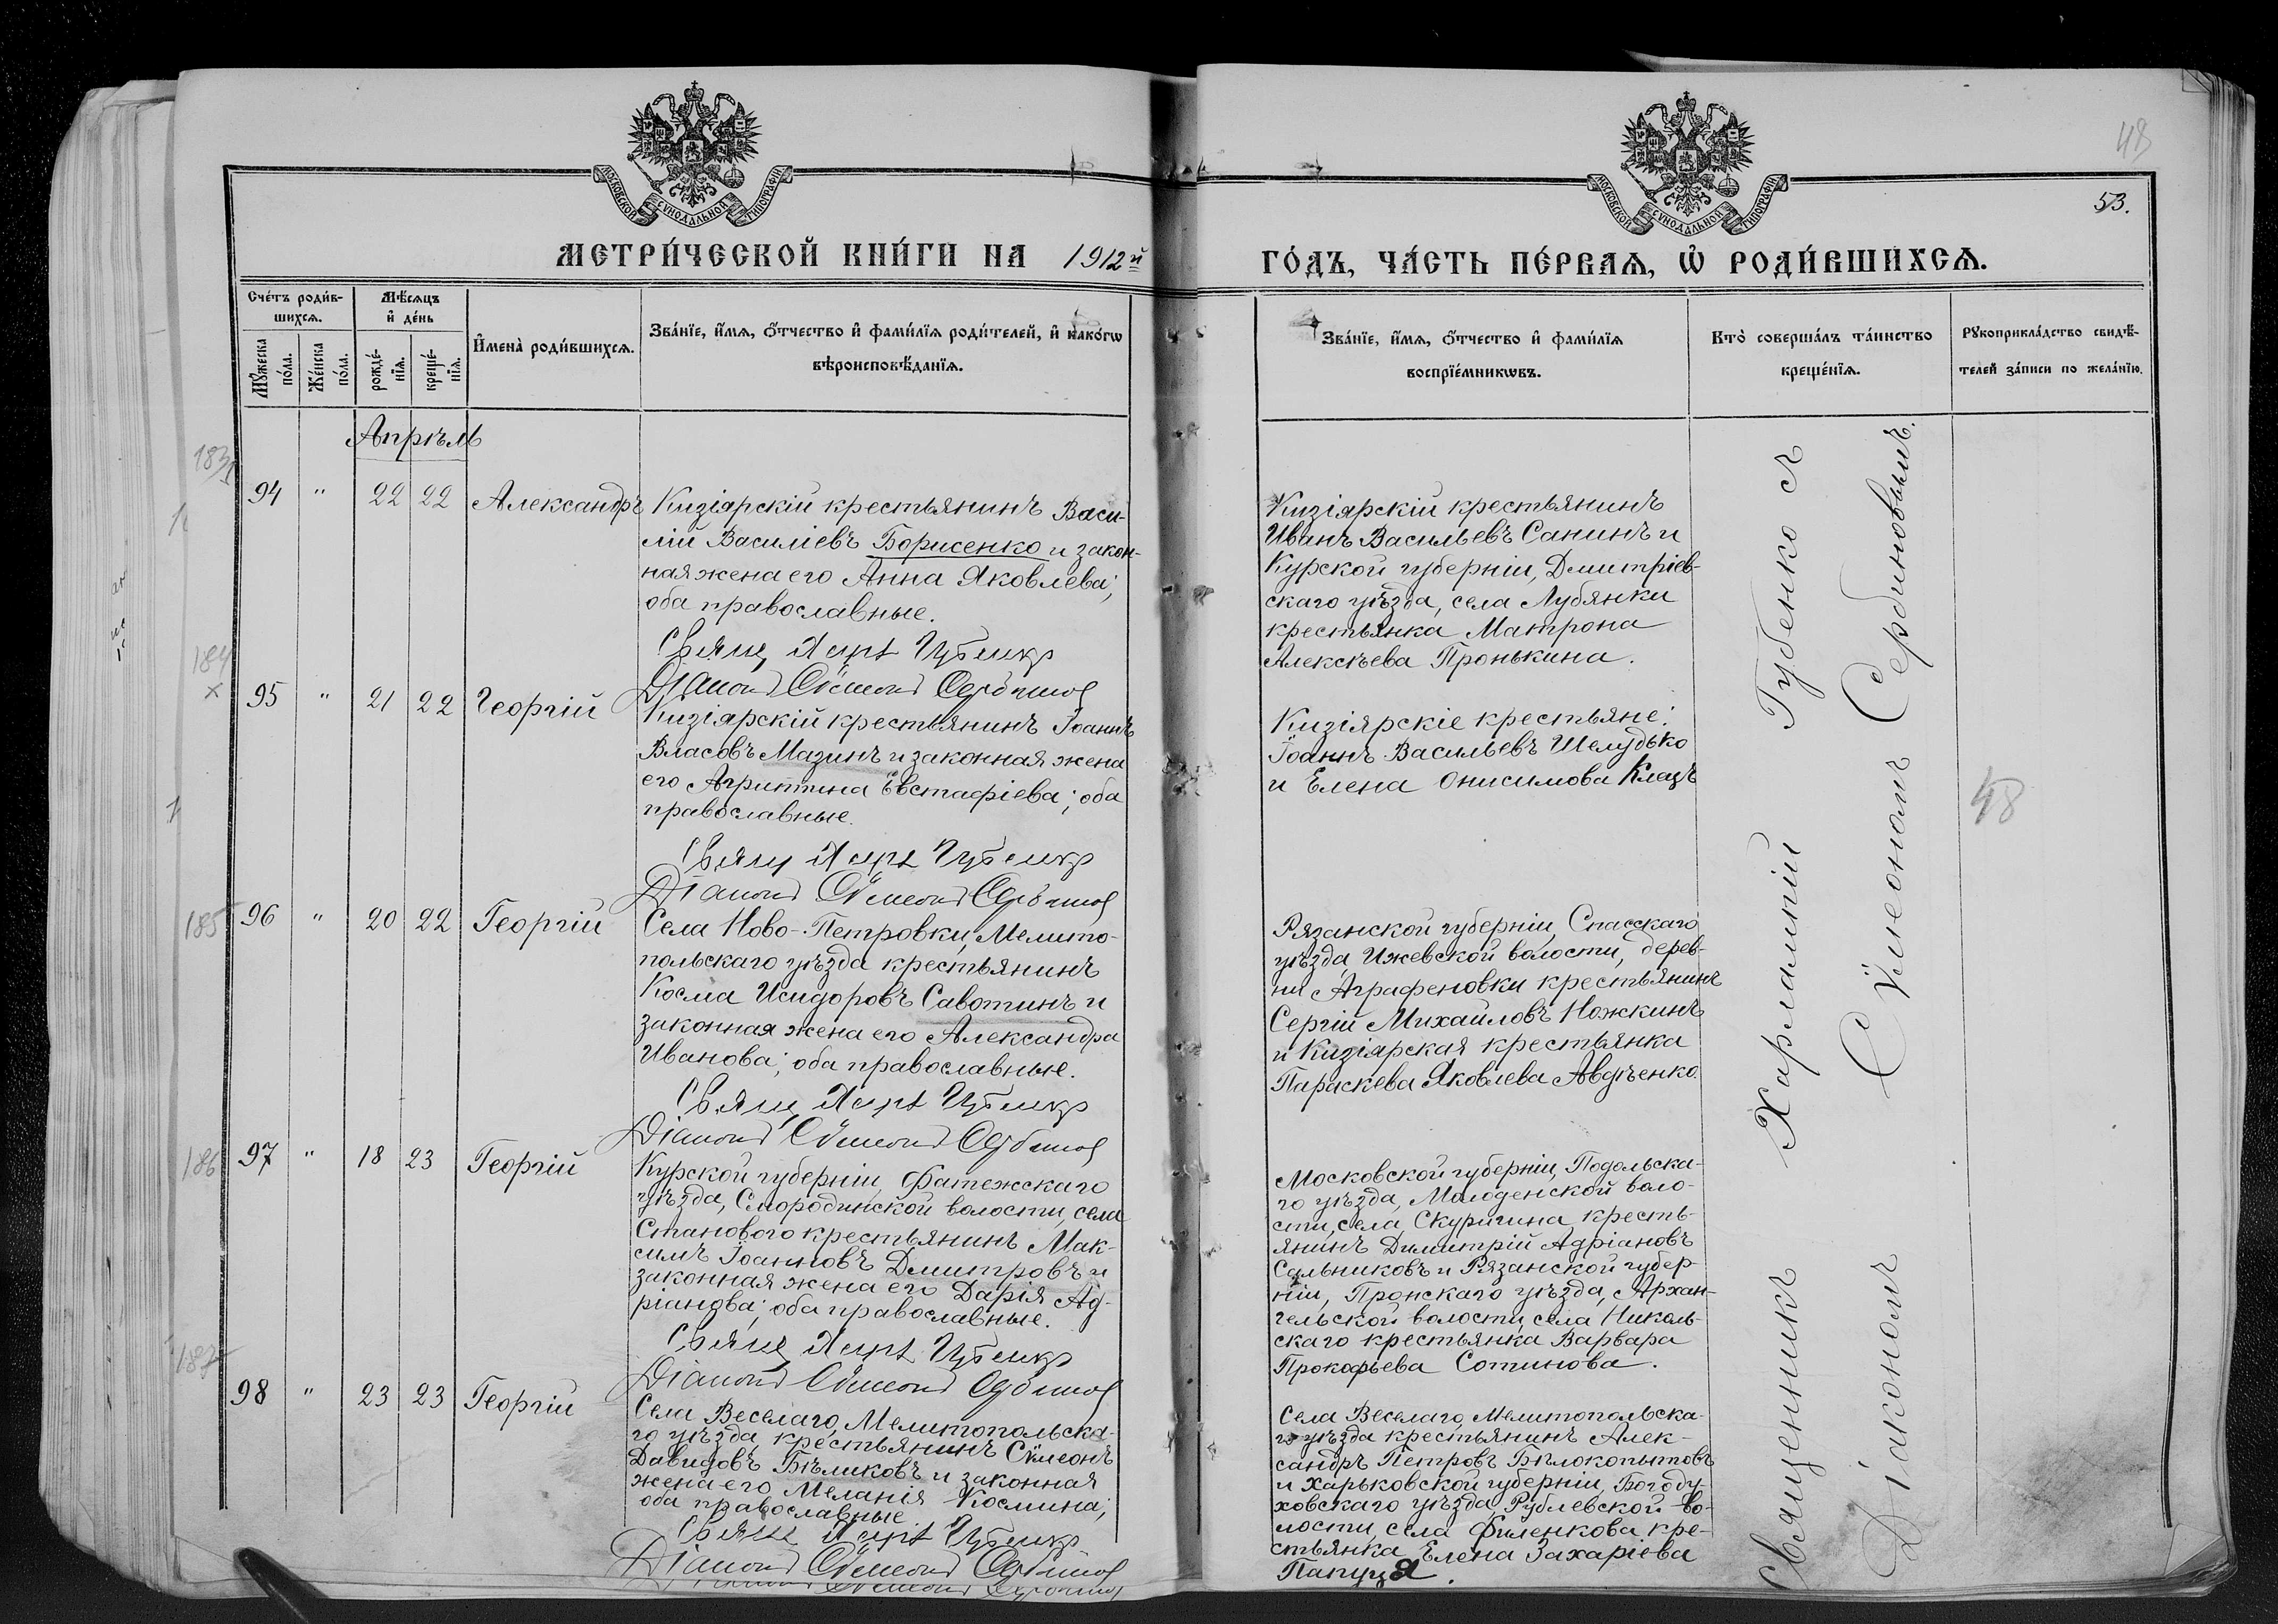 48
53.
МОСКОВСКОЙ СѴНОДАЛЬНОЙ ТИПОГРАФІИ
МОСКОВСКОЙ СѴНОДАЛЬНОЙ ТИПОГРАФІИ
МЕТРИ́ЧЕСКОЙ КНИ́ГИ НА 1912й
ГО́ДЪ, ЧА́СТЬ ПЕ́РВАѦ, Ѡ҆ РОДИ́ВШИХСѦ.
Сче́тъ роди́в-
шихсѧ.
Мѣ́сѧцъ
и҆ де́нь
Мꙋ́жеска
по́ла.
Же́нска
по́ла.
рожде́-
нїѧ.
креще́-
нїѧ.
И҆мена̀ роди́вшихсѧ.
Зва́нїе, и҆́мѧ, ѻ҆́тчество и҆ фами́лїѧ роди́телей, и҆ како́гѡ
вѣроисповѣ́данїѧ.
Зва́нїе, и҆́мѧ, ѻ҆́тчество и҆ фами́лїѧ
воспрїе́мникѡвъ.
Кто̀ соверша́лъ та́инство
креще́нїѧ.
Рꙋкоприкла́дство свидѣ́-
телей за́писи по жела́нїю.
Апрѣль
183
94 " 22 22 Александръ
Кизіярскій крестьянинъ Васи-
лій Василіевъ Борисенко и закон-
ная жена его Анна Яковлева;
оба православные.
Свящ. Харл Губенко
Діаконъ Сѵмеонъ Сербинов
Кизіярскій крестьянинъ
Иванъ Васильевъ Санинъ и
Курской губерніи, Дмитріев-
скаго уѣзда, села Лубянки
крестьянка Матрона
Алексѣева Пронькина.
184
95 " 21 22 Георгій
Кизіярскій крестьянинъ Іоаннъ
Власовъ Мазинъ и законная жена
его Агриппина Евстафіева; оба
православные.
Свящ Харл Губенко
Діаконъ Сѵмеонъ Сербинов
Кизіярскіе крестьяне:
Іоаннъ Васильевъ Шелудько
и Елена Онисимова Клацъ
185
96 " 20 22 Георгій
Села Ново-Петровки, Мелито-
польскаго уѣзда крестьянинъ
Косма Исидоровъ Савотинъ и
законная жена его Александра
Иванова; оба православные.
Свящ Харл Губенко
Діаконъ Сѵмеонъ Сербинов
Рязанской губерніи, Спасскаго
уѣзда Ижевской волости, дерев-
ни Аграфеновки крестьянинъ
Сергій Михайловъ Ножкинъ
и Кизіярская крестьянка
Параскева Яковлева Авдѣенко.
186
97 " 18 23 Георгій
Курской губерніи, Фатежскаго
уѣзда, Смородинской волости, села
Станового крестьянинъ Мак-
симъ Іоанновъ Дмитровъ и
законная жена его Дарія Ад-
ріанова; оба православные.
Свящ Харл Губенко
Діаконъ Сѵмеонъ Сербинов
Московской губерніи, Подольска-
го уѣзда, Молоденской воло-
сти, села Скуригина кресть-
янинъ Димитрій Адріановъ
Сальниковъ и Рязанской губер-
ніи, Пронскаго уѣзда, Архан-
гельской волости, села Николь-
скаго крестьянка Варвара
Прокофьева Сотинова.
187
98 " 23 23 Георгій
Села Веселаго, Мелитопольска-
го уѣзда, крестьянинъ Сѵмеонъ
Давидовъ Бѣликовъ и законная
жена его Меланія Космина;
оба православные
Свящ Харл Губенко
Діаконъ Сѵмеонъ Сербинов
Села Веселаго, Мелитопольска-
го уѣзда крестьянинъ Алек-
сандръ Петровъ Бѣлокопытовъ
и Харьковской губерніи, Богоду-
ховскаго уѣзда, Рублевской во-
лости, села Филенкова кре-
стьянка Елена Захаріева
Папуця.
Священникъ Харлампій Губенко съ
Діакономъ Сѵмеономъ Сербиновымъ.
48